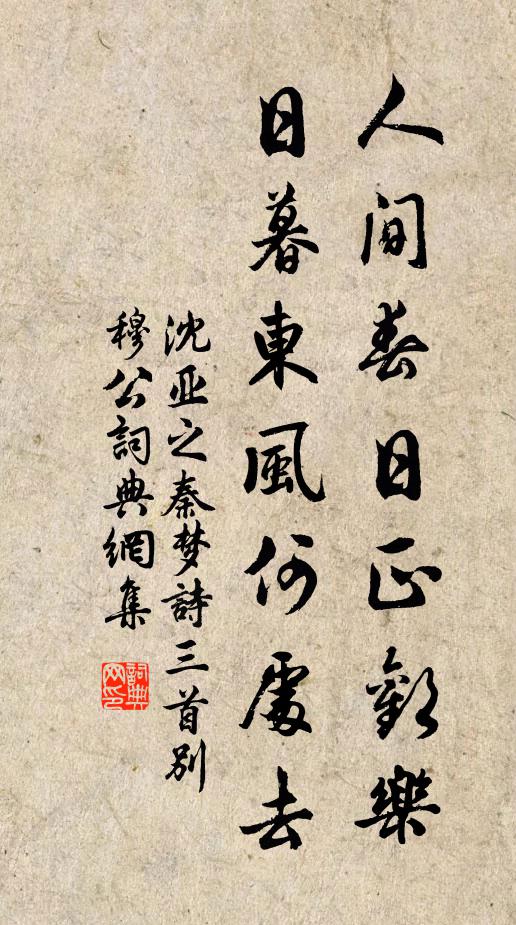 人間春日正歡樂
日暮東風何處去
沈亚之秦梦詩三首别
穆公詞典網集
詞典网印